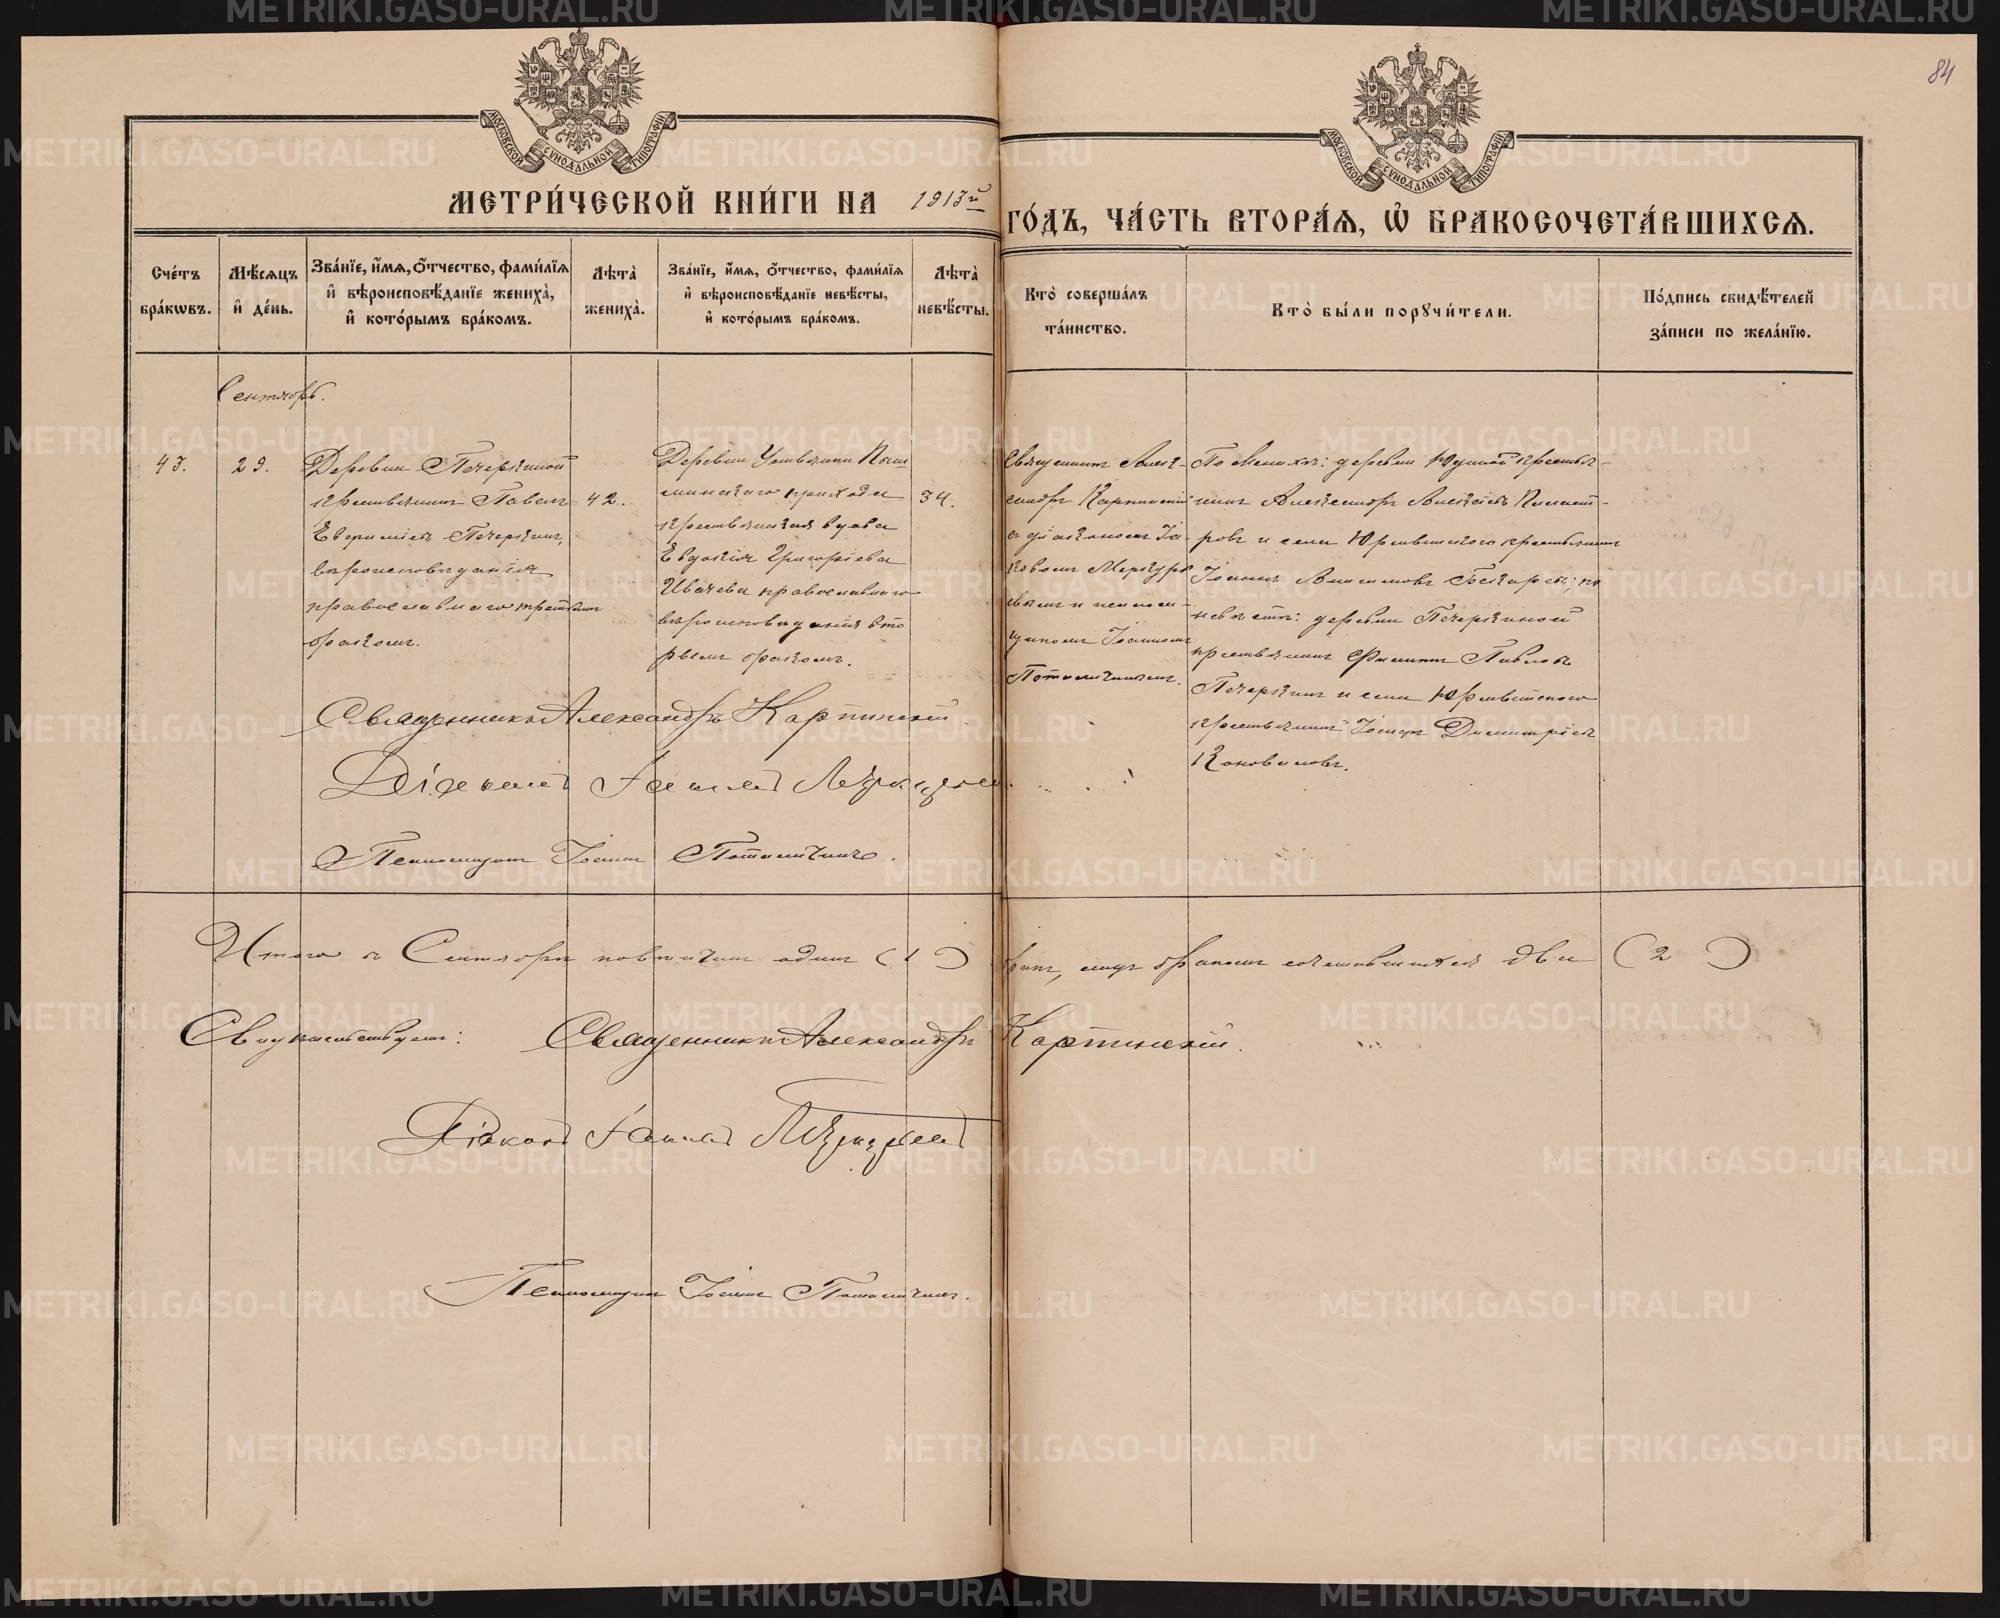 84
МОСКОВСКОЙ СѴНОДАЛЬНОЙ ТИПОГРАФІИ
МОСКОВСКОЙ СѴНОДАЛЬНОЙ ТИПОГРАФІИ
МЕТРИ́ЧЕСКОЙ КНИ́ГИ НА 1913й ГО́ДЪ, ЧА́СТЬ ВТОРА́Я, Ѡ БРАКОСОЧЕТА́ВШИХСЯ.
Сче́тъ
бра́кѡвъ.
Мѣ́сяцъ
и҆ де́нь.
Зва́нїе, и҆́мя, ѻ҆́тчество, фами́лїя
и҆ вѣроисповѣ́данїе жениха̀,
и҆ кото́рымъ бра́комъ.
Лѣ́та
жениха̀.
Зва́нїе, и҆́мя, ѻ҆́тчество, фами́лїя
и҆ вѣроисповѣ́данїе невѣ́сты,
и҆ кото́рымъ бра́комъ.
Лѣ́та
невѣ́сты.
Кто̀ соверша́лъ
та́инство.
Кто̀ бы́ли порꙋчи́тели.
По́дпись свидѣ́телей
за́писи по жела́нїю.
Сентябрь.
43.
29.
Деревни Печеркиной
крестьянинъ Павелъ
Печеркинъ,
вѣроисповѣданія
православнаго третьимъ
бракомъ.
42.
Деревни
прихода
крестьянская вдова
Евдокія Григоріева
Ивачева православнаго
вѣроисповѣданія вто
рымъ бракомъ.
34.
Священникъ Алек-
сандръ Карпинскій
съ діакономъ Іа-
ковомъ Меркурь
евымъ и псаломщ-
щикомъ Іоанномъ
По женихѣ: деревни крестья-
нинъ Александръ Алексѣевъ
ровъ и села крестьянинъ
Іоаннъ по
невѣстѣ: деревни Печеркиной
крестьянинъ Филиппъ Павловъ
Печеркинъ и села
крестьянинъ Іосифъ Димитріевъ
Коноваловъ.
Священникъ Александръ Карпинскій
Діаконъ Іаковъ Меркурьевъ
Псаломщикъ Іоаннъ
Итого въ Сентябрѣ повѣнчанъ одинъ (1) бракъ, лицъ бракомъ сочетавшихся два (2)
Свидѣтельствуемъ: Священникъ Александръ Карпинскій.
Діаконъ Іаковъ Меркурьевъ
Псаломщикъ Іоаннъ
METRIKI.GASO-URAL.RU